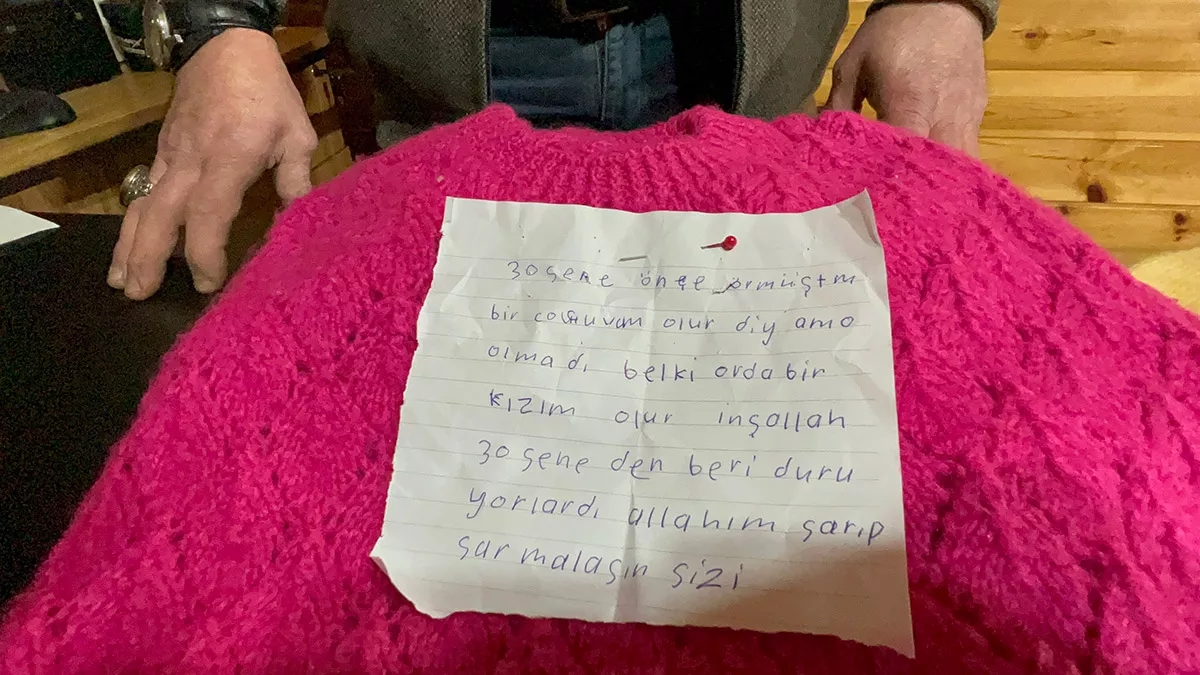 30 şene önçe ormüştm
bir coçuvum olur diy amo
olmadı belki orda bir
kızım olur inşallah
30 şene den beri duru
yorlardı allahım şarıp
şar malaşın şizi